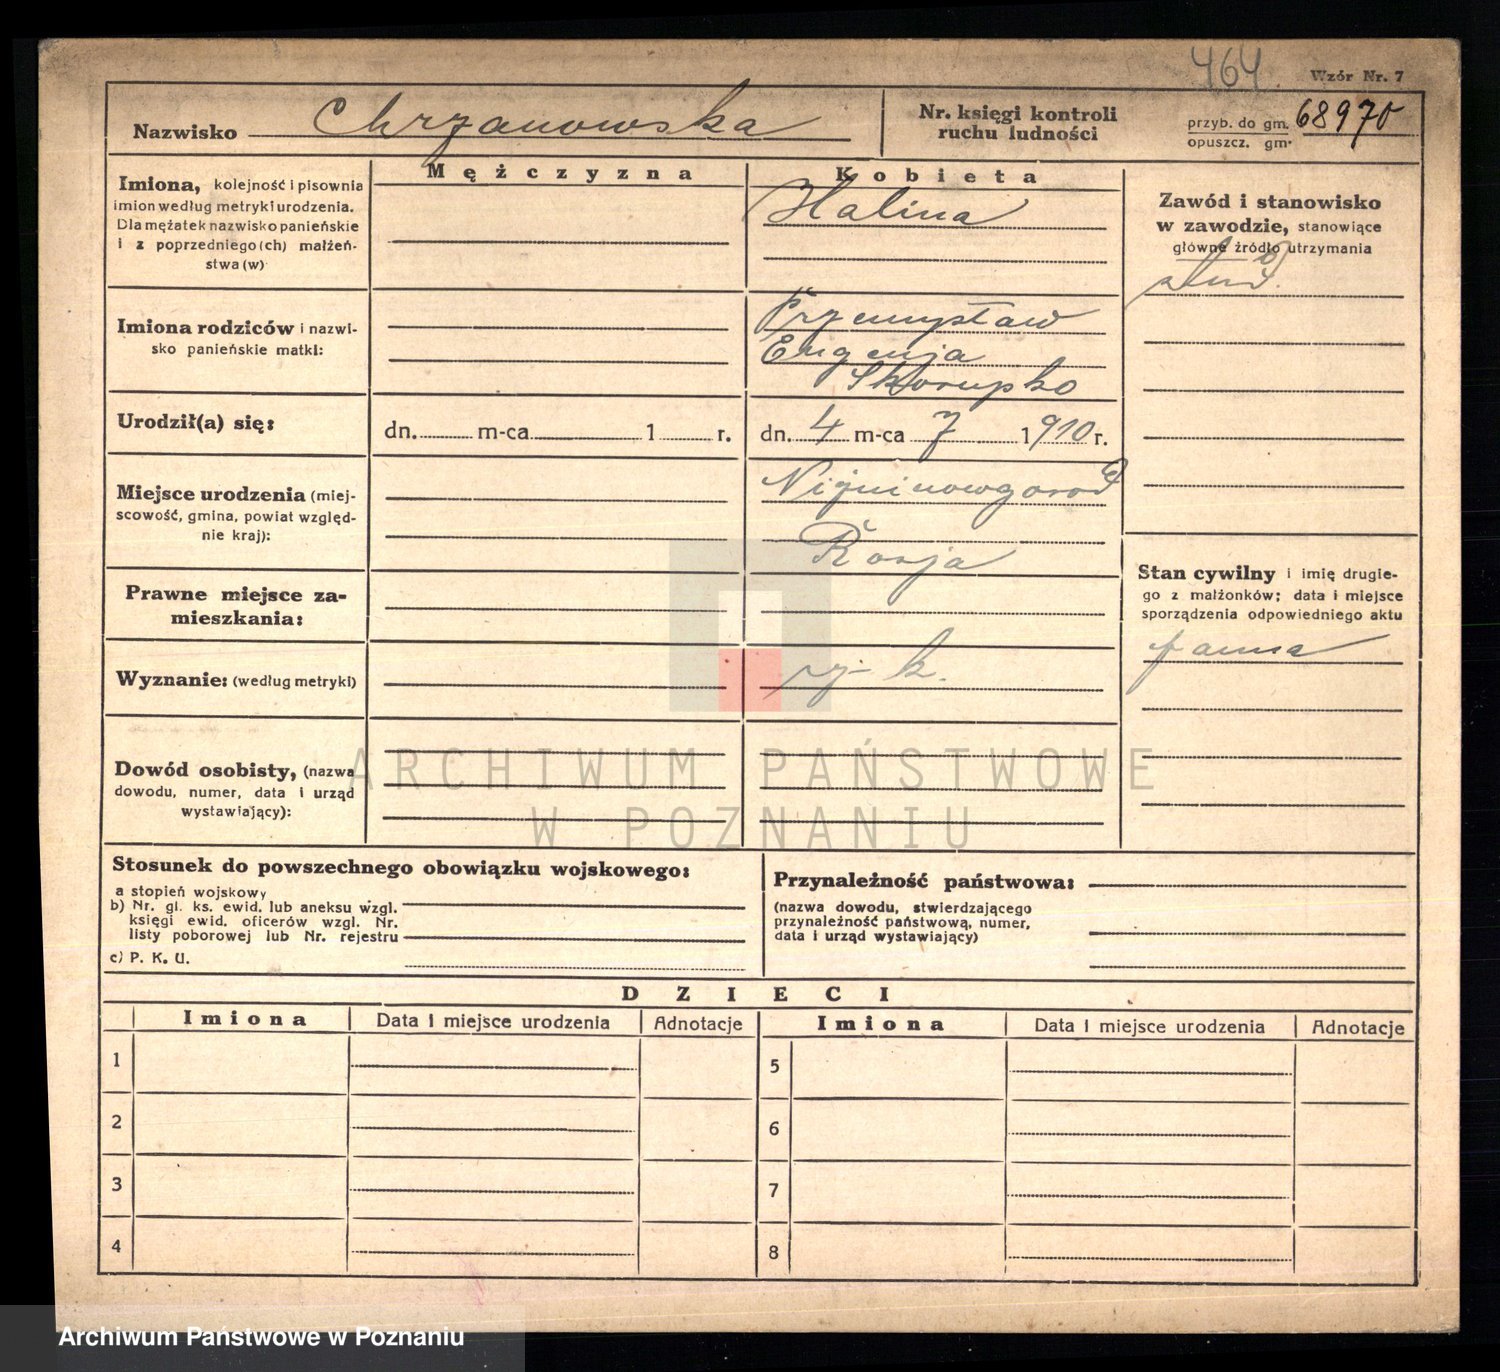 464
Wzór Nr. 7
Nazwisko Chrzanowska
Nr. księgi kontroli
ruchu ludności
przyb. do gm. 68970
opuszcz. gm.
Mężczyzna
Kobieta
Imiona, kolejność i pisownia
imion według metryki urodzenia.
Dla mężatek nazwisko panieńskie
i z poprzedniego(ch) małżeń-
stwa(w)
Halina
Zawód i stanowisko
w zawodzie, stanowiące
główne źródło utrzymania
stud.
Imiona rodziców i nazwi-
sko panieńskie matki:
Przemysław
Eugenja
Skorupko
Urodził(a) się:
dn. m-ca 1 r.
dn. 4 m-ca 7 1910 r.
Miejsce urodzenia (miej-
scowość, gmina, powiat względ-
nie kraj):
Niżninowgorod
Rosja
Stan cywilny i imię drugie-
go z małżonków; data i miejsce
sporządzenia odpowiedniego aktu
panna
Prawne miejsce za-
mieszkania:
Wyznanie: (według metryki)
rz- k.
Dowód osobisty, (nazwa
dowodu, numer, data i urząd
wystawiający):
ARCHIWUM PAŃSTWOWE
W POZNANIU
Stosunek do powszechnego obowiązku wojskowego:
a stopień wojskowy
b) Nr. gl. ks. ewid. lub aneksu wzgl.
księgi ewid. oficerów wzgl. Nr.
listy poborowej lub Nr. rejestru
c) P. K. U.
Przynależność państwowa:
(nazwa dowodu, stwierdzającego
przynależność państwową, numer,
data i urząd wystawiający)
DZIECI
Imiona
Data i miejsce urodzenia
Adnotacje
Imiona
Data i miejsce urodzenia
Adnotacje
1
5
2
6
3
7
4
8
Archiwum Państwowe w Poznaniu